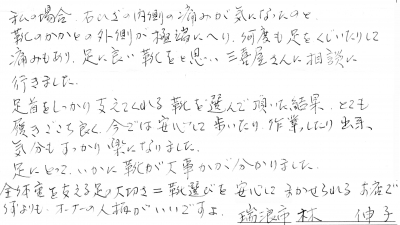 私の場合、右ひざの内側の痛みが気になったのと、
靴のかかとの外側が極端にへり、何度も足をくじいたりして
痛みもあり、足に良い靴をと思い、三喜屋さんに相談に
行きました。
足首をしっかり支えてくれる靴を選んで頂いた結果、とても
履きごこち良く、今では安心して歩いたり、作業したり出来、
気分もすっかり楽になりました。
足にとって、いかに靴が大事かが分かりました。
全体重を支える足の大切さ=靴選びを安心してまかせられるお店で
何よりも、オーナーの人柄がいいですよ。 瑞浪市 林 伸子